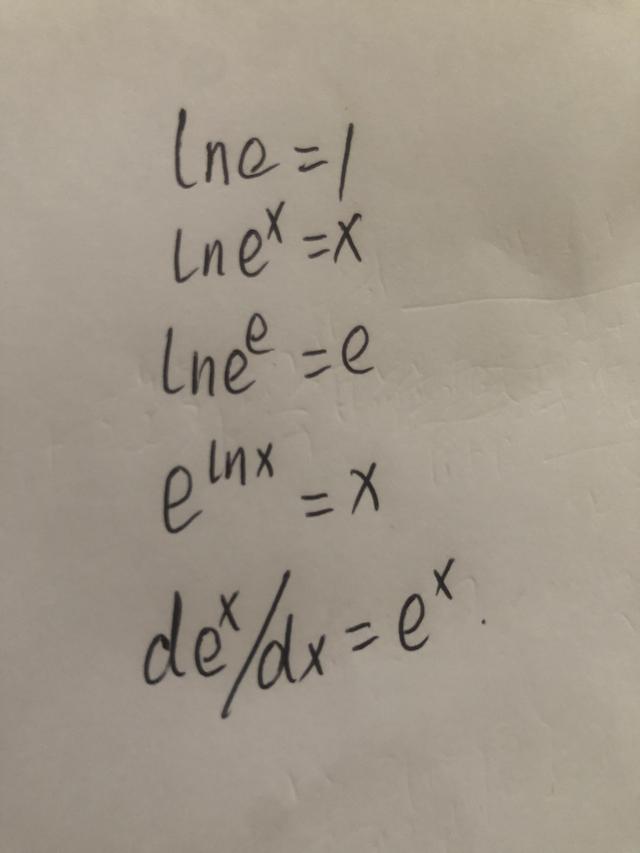 ln e = 1
ln eˣ = x
ln eᵉ = e
e^{ln x} = x
deˣ/dx = eˣ.